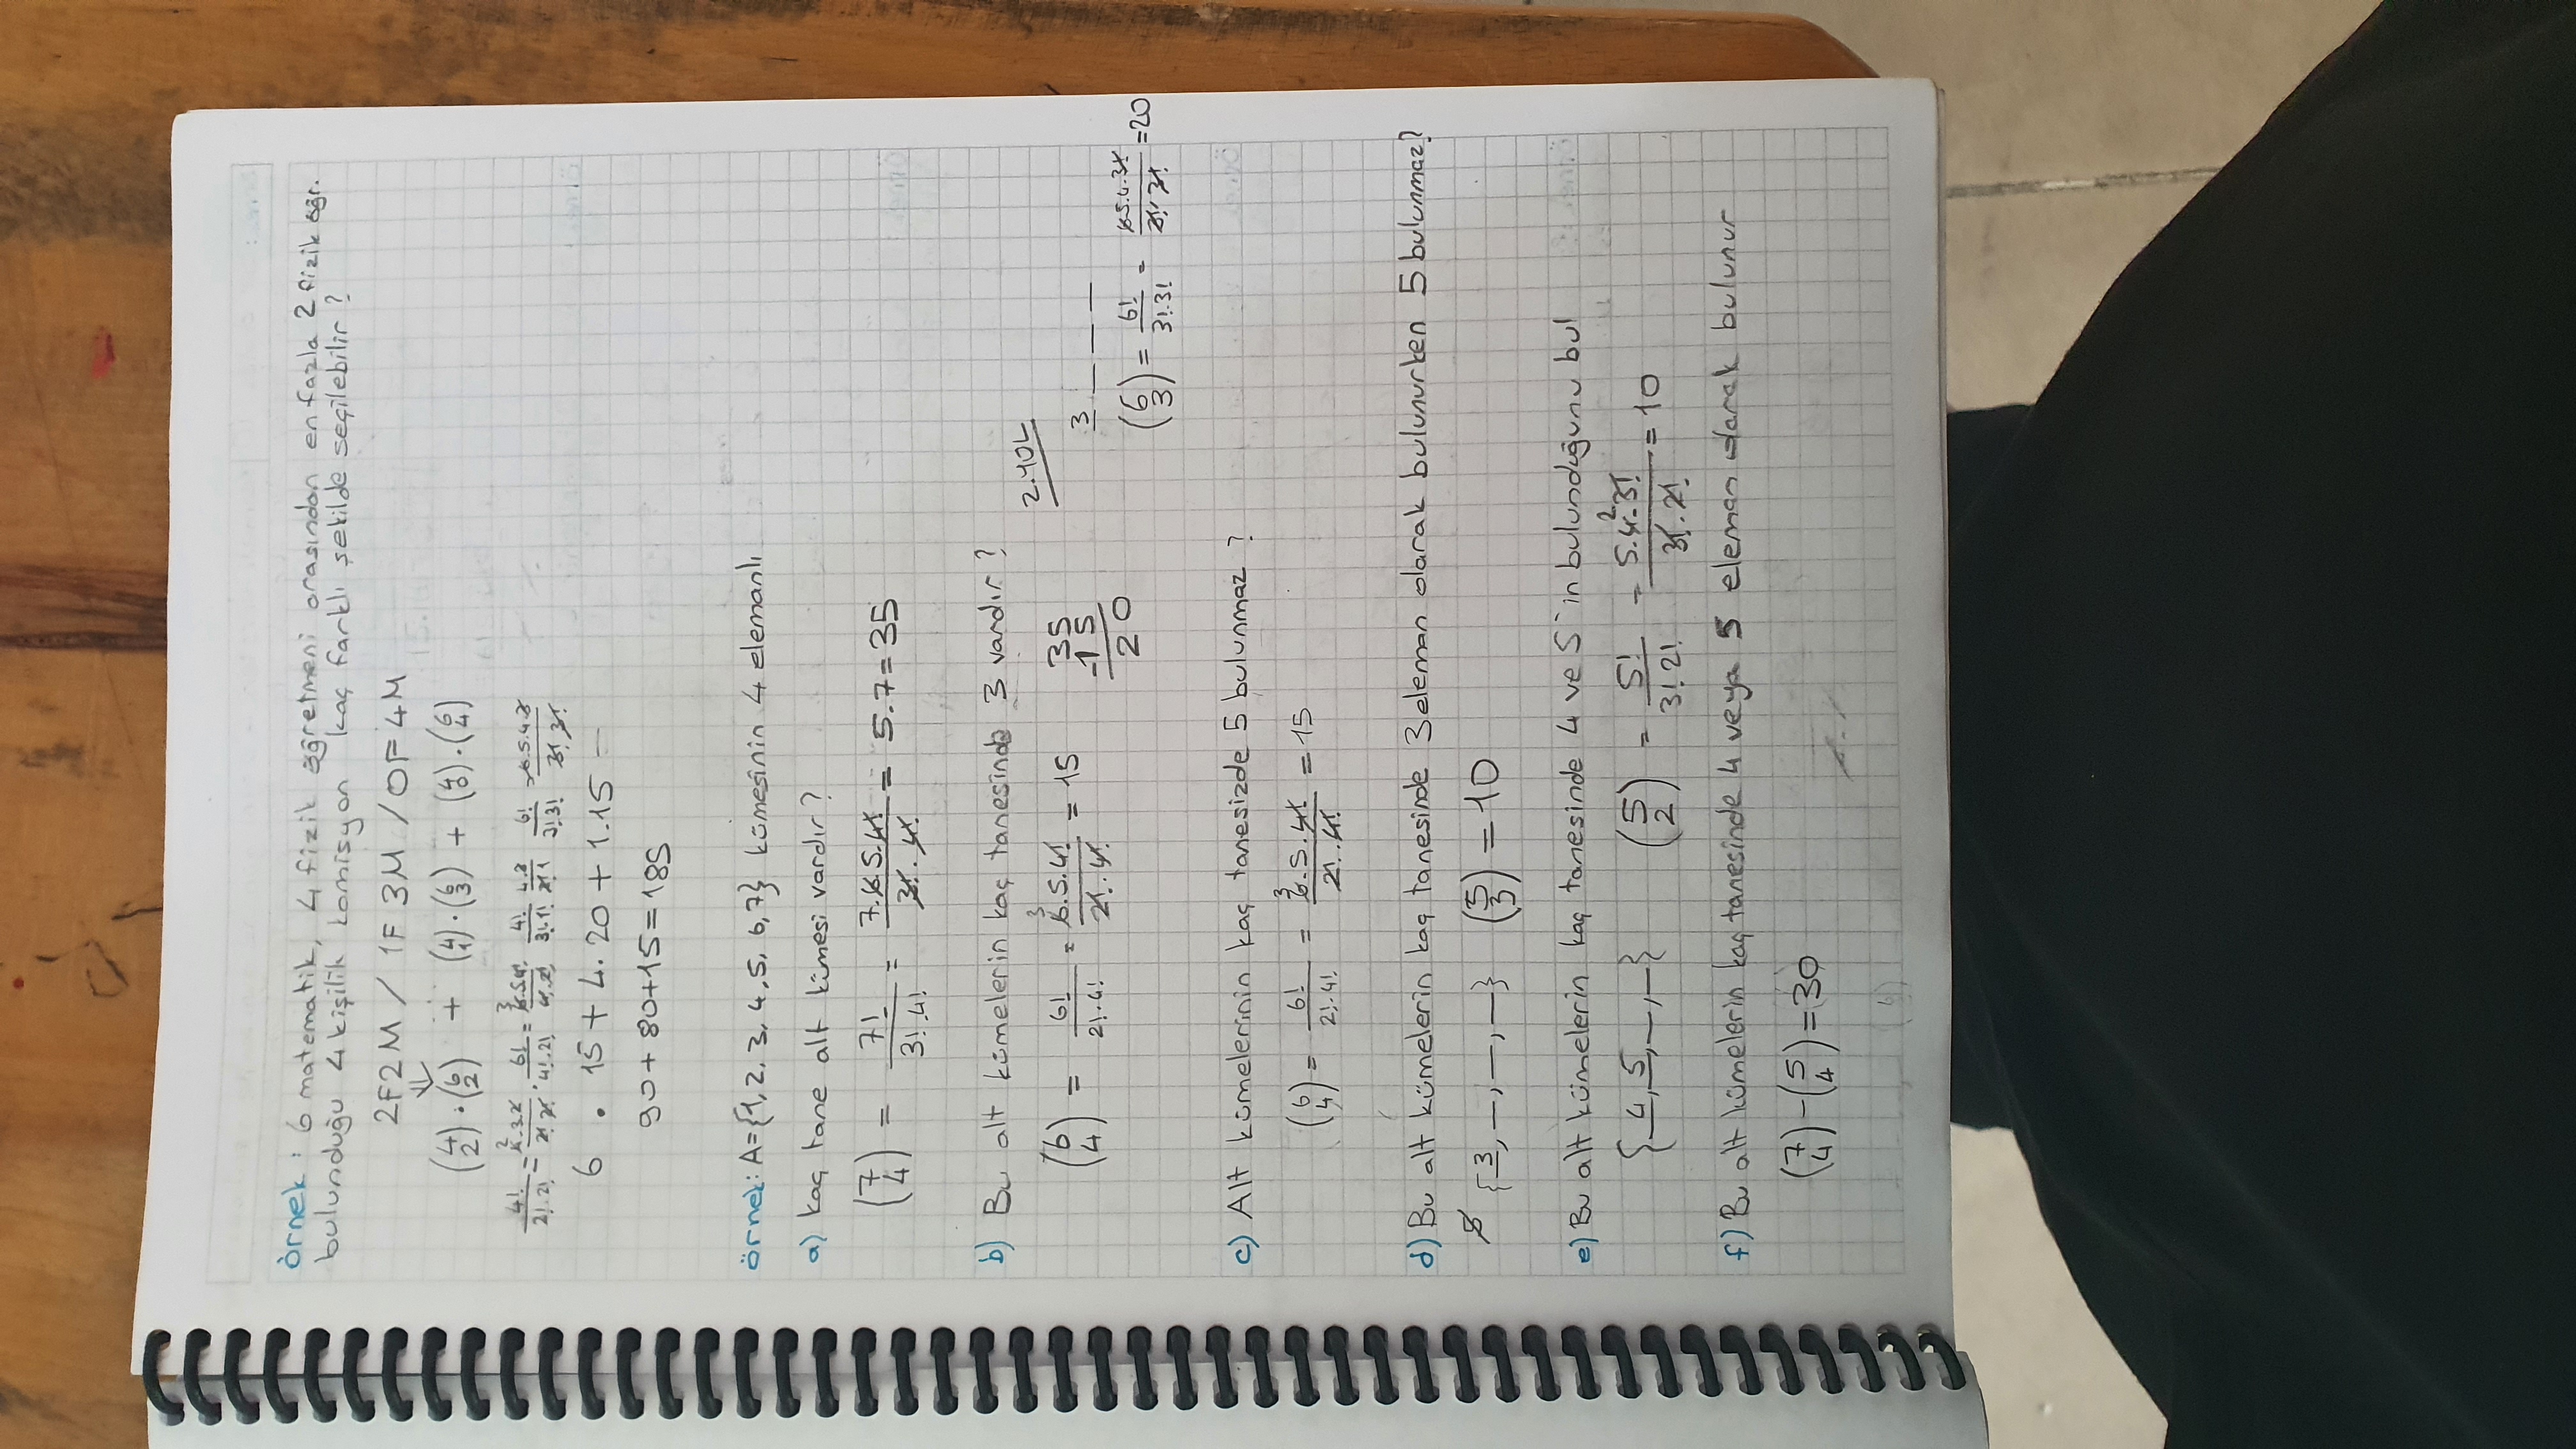 örnek: 6 matematik, 4 fizik öğretmeni arasından en fazla 2 fizik öğr.
bulunduğu 4 kişilik komisyon kaç farklı şekilde seçilebilir?
2F2M / 1F 3M / 0F 4M
(4 2) . (6 2) + (4 1) . (6 3) + (4 0) . (6 4)
4!/2!.2! = 4.3.2/2! 2! . 6!/4!.2! = 6.5.4!/4!.2! 4!/3!.1! 6!/3!3! = 6.5.4.3/3! 3!
6 . 15 + 4.20 + 1.15 =
90+80+15=185
örnek: A={1, 2, 3, 4, 5, 6, 7} kümesinin 4 elemanlı
a) kaç tane alt kümesi vardır?
(7 4) = 7!/3!.4! = 7.6.5.4!/3!.4! = 5.7=35
b) Bu alt kümelerin kaç tanesinde 3 vardır?
(6 4) = 6!/2!.4! = 6.5.4!/2!.4! = 15
3
35
-15
20
2.YOL
3 _ _ _
(6 3) = 6!/3!.3! = 6.5.4.3!/3! 3! =20
c) Alt kümelerinin kaç tanesizde 5 bulunmaz?
(6 4) = 6!/2!.4! = 6.5.4!/2!.4! = 15
3
d) Bu alt kümelerin kaç tanesinde 3 eleman olarak bulunurken 5 bulunmaz?
5 {3, _, _, _} (5 3) = 10
e) Bu alt kümelerin kaç tanesinde 4 ve 5'in bulunduğunu bul
{4, 5, _, _} (5 2) = 5!/3!2! = 5.4.3!/3!.2! = 10
2
f) Bu alt kümelerin kaç tanesinde 4 veya 5 eleman olarak bulunur
(7 4) - (5 4) = 30